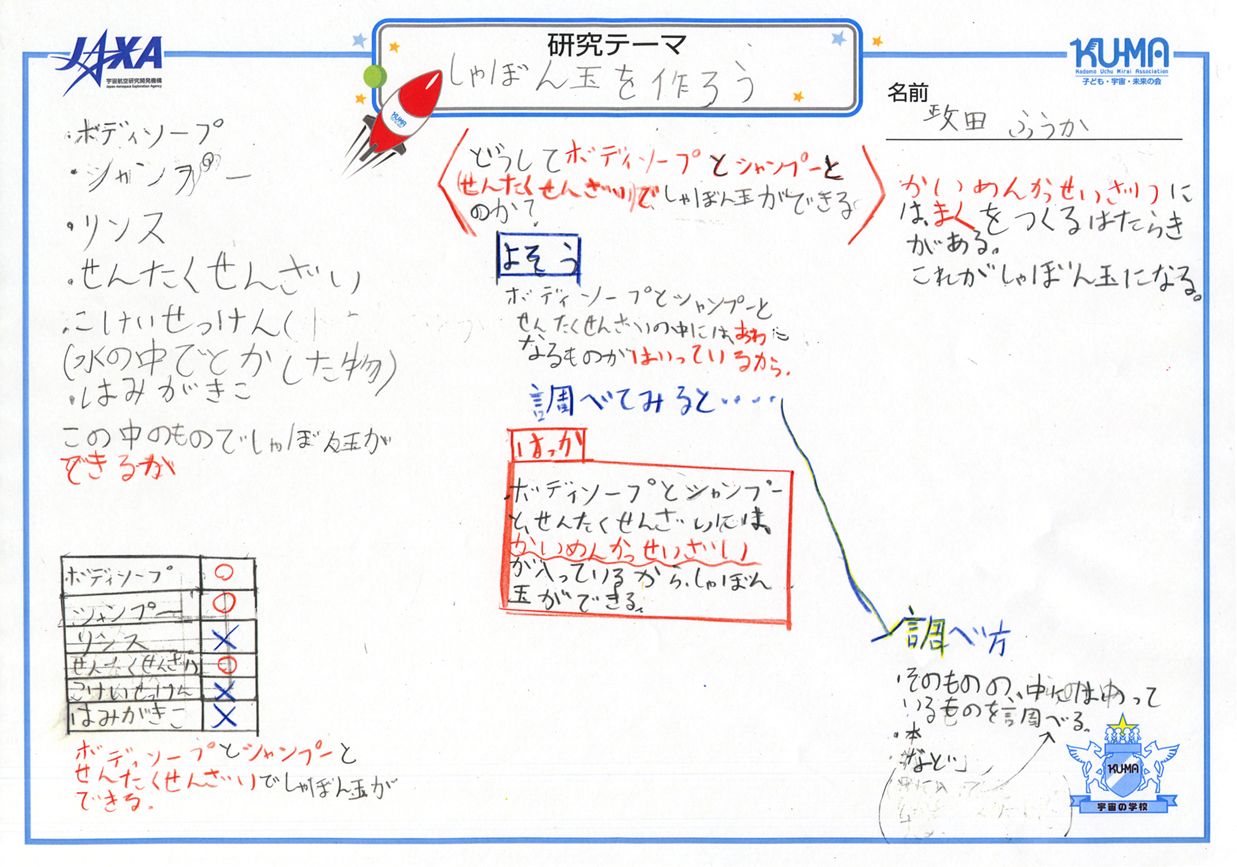 JAXA
宇宙航空研究開発機構
Japan Aerospace Exploration Agency
研究テーマ
しゃぼん玉を作ろう
KUMA
KU-MA
Kodomo Uchu Mirai Association
子ども・宇宙・未来の会
名前
田 ふうか
・ボディソープ
・シャンプー
・リンス
・せんたくせんざい
・こけいせっけん(
(水の中でとかした物)
・はみがきこ
この中のものでしゃぼん玉が
できるか
ボディソープ ○
シャンプー ○
リンス ×
せんたくせんざい ○
こけいせっけん ×
はみがきこ ×
ボディソープとシャンプーと
せんたくせんざいでしゃぼん玉が
できる。
どうしてボディソープとシャンプーと
(せんたくせんざい)でしゃぼん玉ができる
のか?
よそう
ボディソープとシャンプーと
せんたくせんざいの中には、あわに
なるものがはいっているから。
調べてみると・・・・
はっか
ボディソープとシャンプー
と、せんたくせんざいには、
かいめんかっせいざい
が入っているから、しゃぼん
玉ができる。
かいめんかっせいざいに
は、まくをつくるはたらき
がある。
これがしゃぼん玉になる。
調べ方
・そのものの、中にはいって
いるものを調べる。
・本
など」
KUMA
宇宙の学校